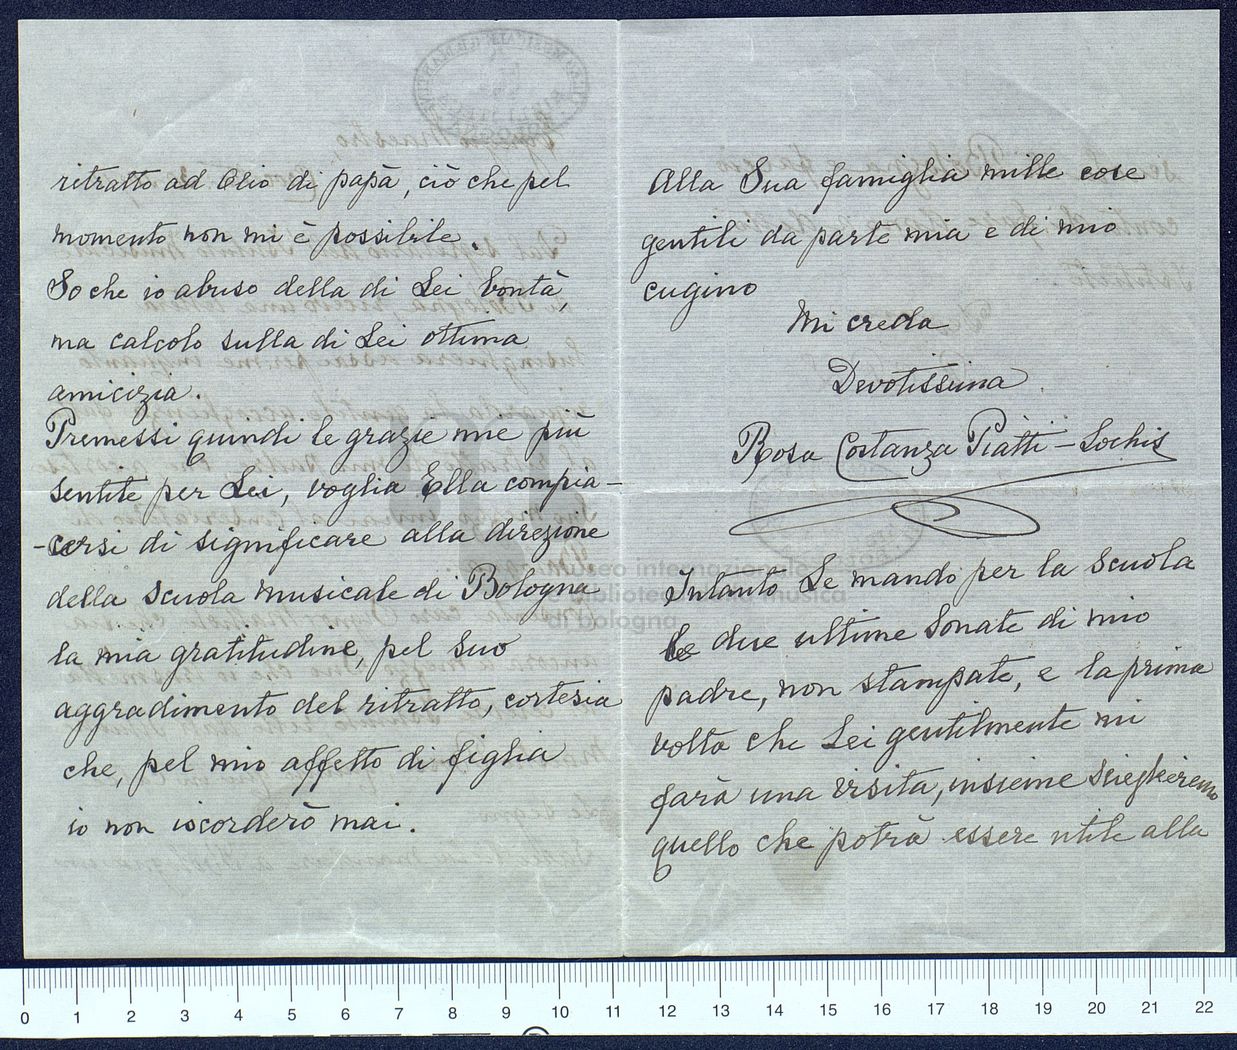 ritratto ad Olio di papà, ciò che pel
momento non mi è possibile.
So che io abuso della di Lei bontà
ma calcolo sulla di Lei ottima
amicizia.
Premessi quindi le grazie me più
sentite per Lei, voglia Ella compia-
-cersi di significare alla direzione
della scuola musicale di Bologna
la mia gratitudine, pel suo
aggradimento del ritratto, cortesia
che, pel mio affetto di figlia
io non iscorderò mai.
Alla Sua famiglia mille cose
gentili da parte mia e di mio
cugino
Mi creda
Devotissima
Rosa Costanza Piatti-Lochis
Intanto Le mando per la scuola
le due ultime Sonate di mio
padre, non stampate, e la prima
volta che Lei gentilmente mi
farà una visita, insieme sciegkieremo
quello che potrà essere utile alla
museo internazionale
e biblioteca della musica
di bologna
0 1 2 3 4 5 6 7 8 9 10 11 12 13 14 15 16 17 18 19 20 21 22